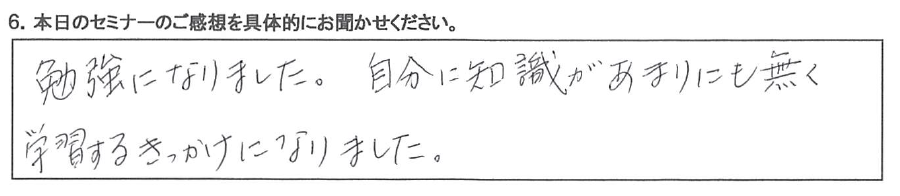 6. 本日のセミナーのご感想を具体的にお聞かせください。
勉強になりました。自分に知識があまりにも無く
学習するきっかけになりました。